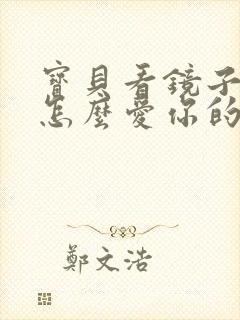 寶貝看鏡子
怎麼愛你的
鄭文浩